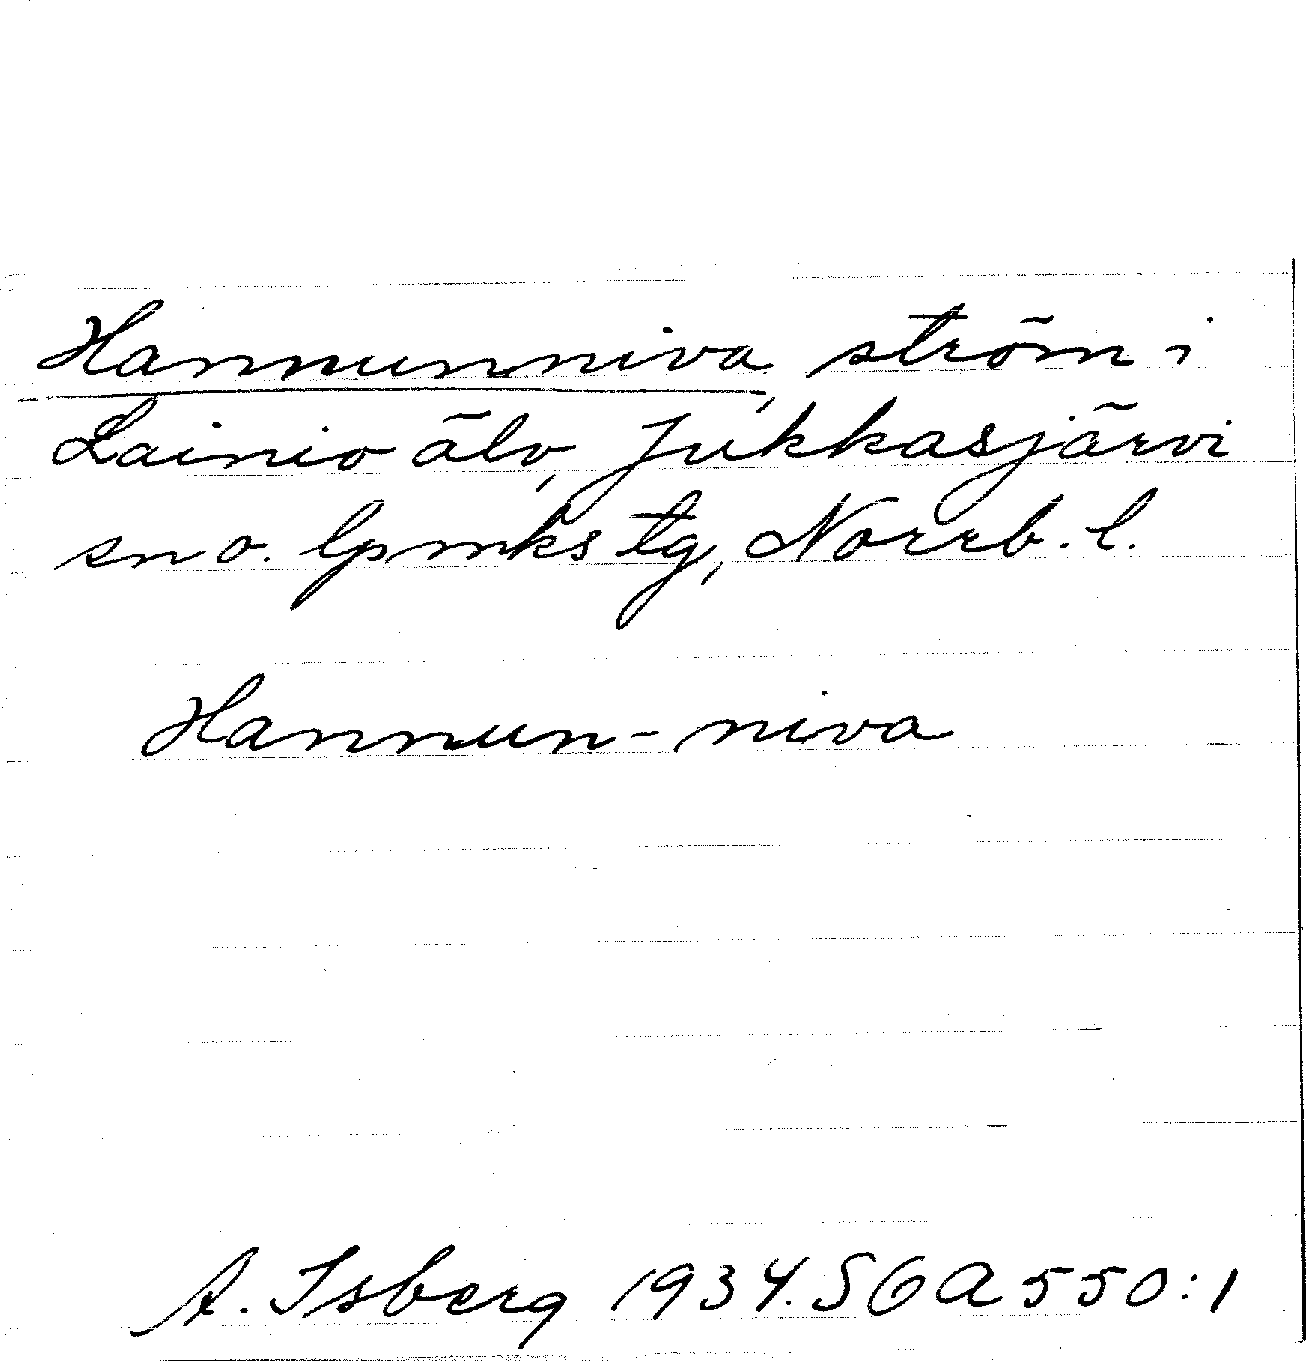 Hannunniva, ström i
Lainio älv, Jukkasjärvi
sn o. lpmks tg, Norrb. l.
Hannun-niva
A. Isberg 1934. SOA 550:1